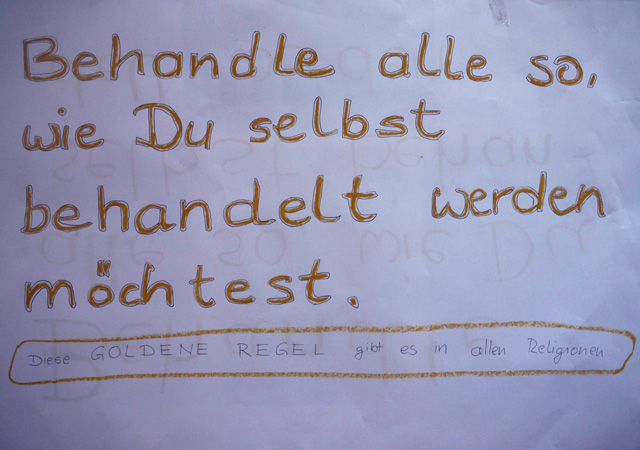 Behandle alle so,
wie Du selbst
behandelt werden
möchtest.
Diese GOLDENE REGEL gibt es in allen Religionen